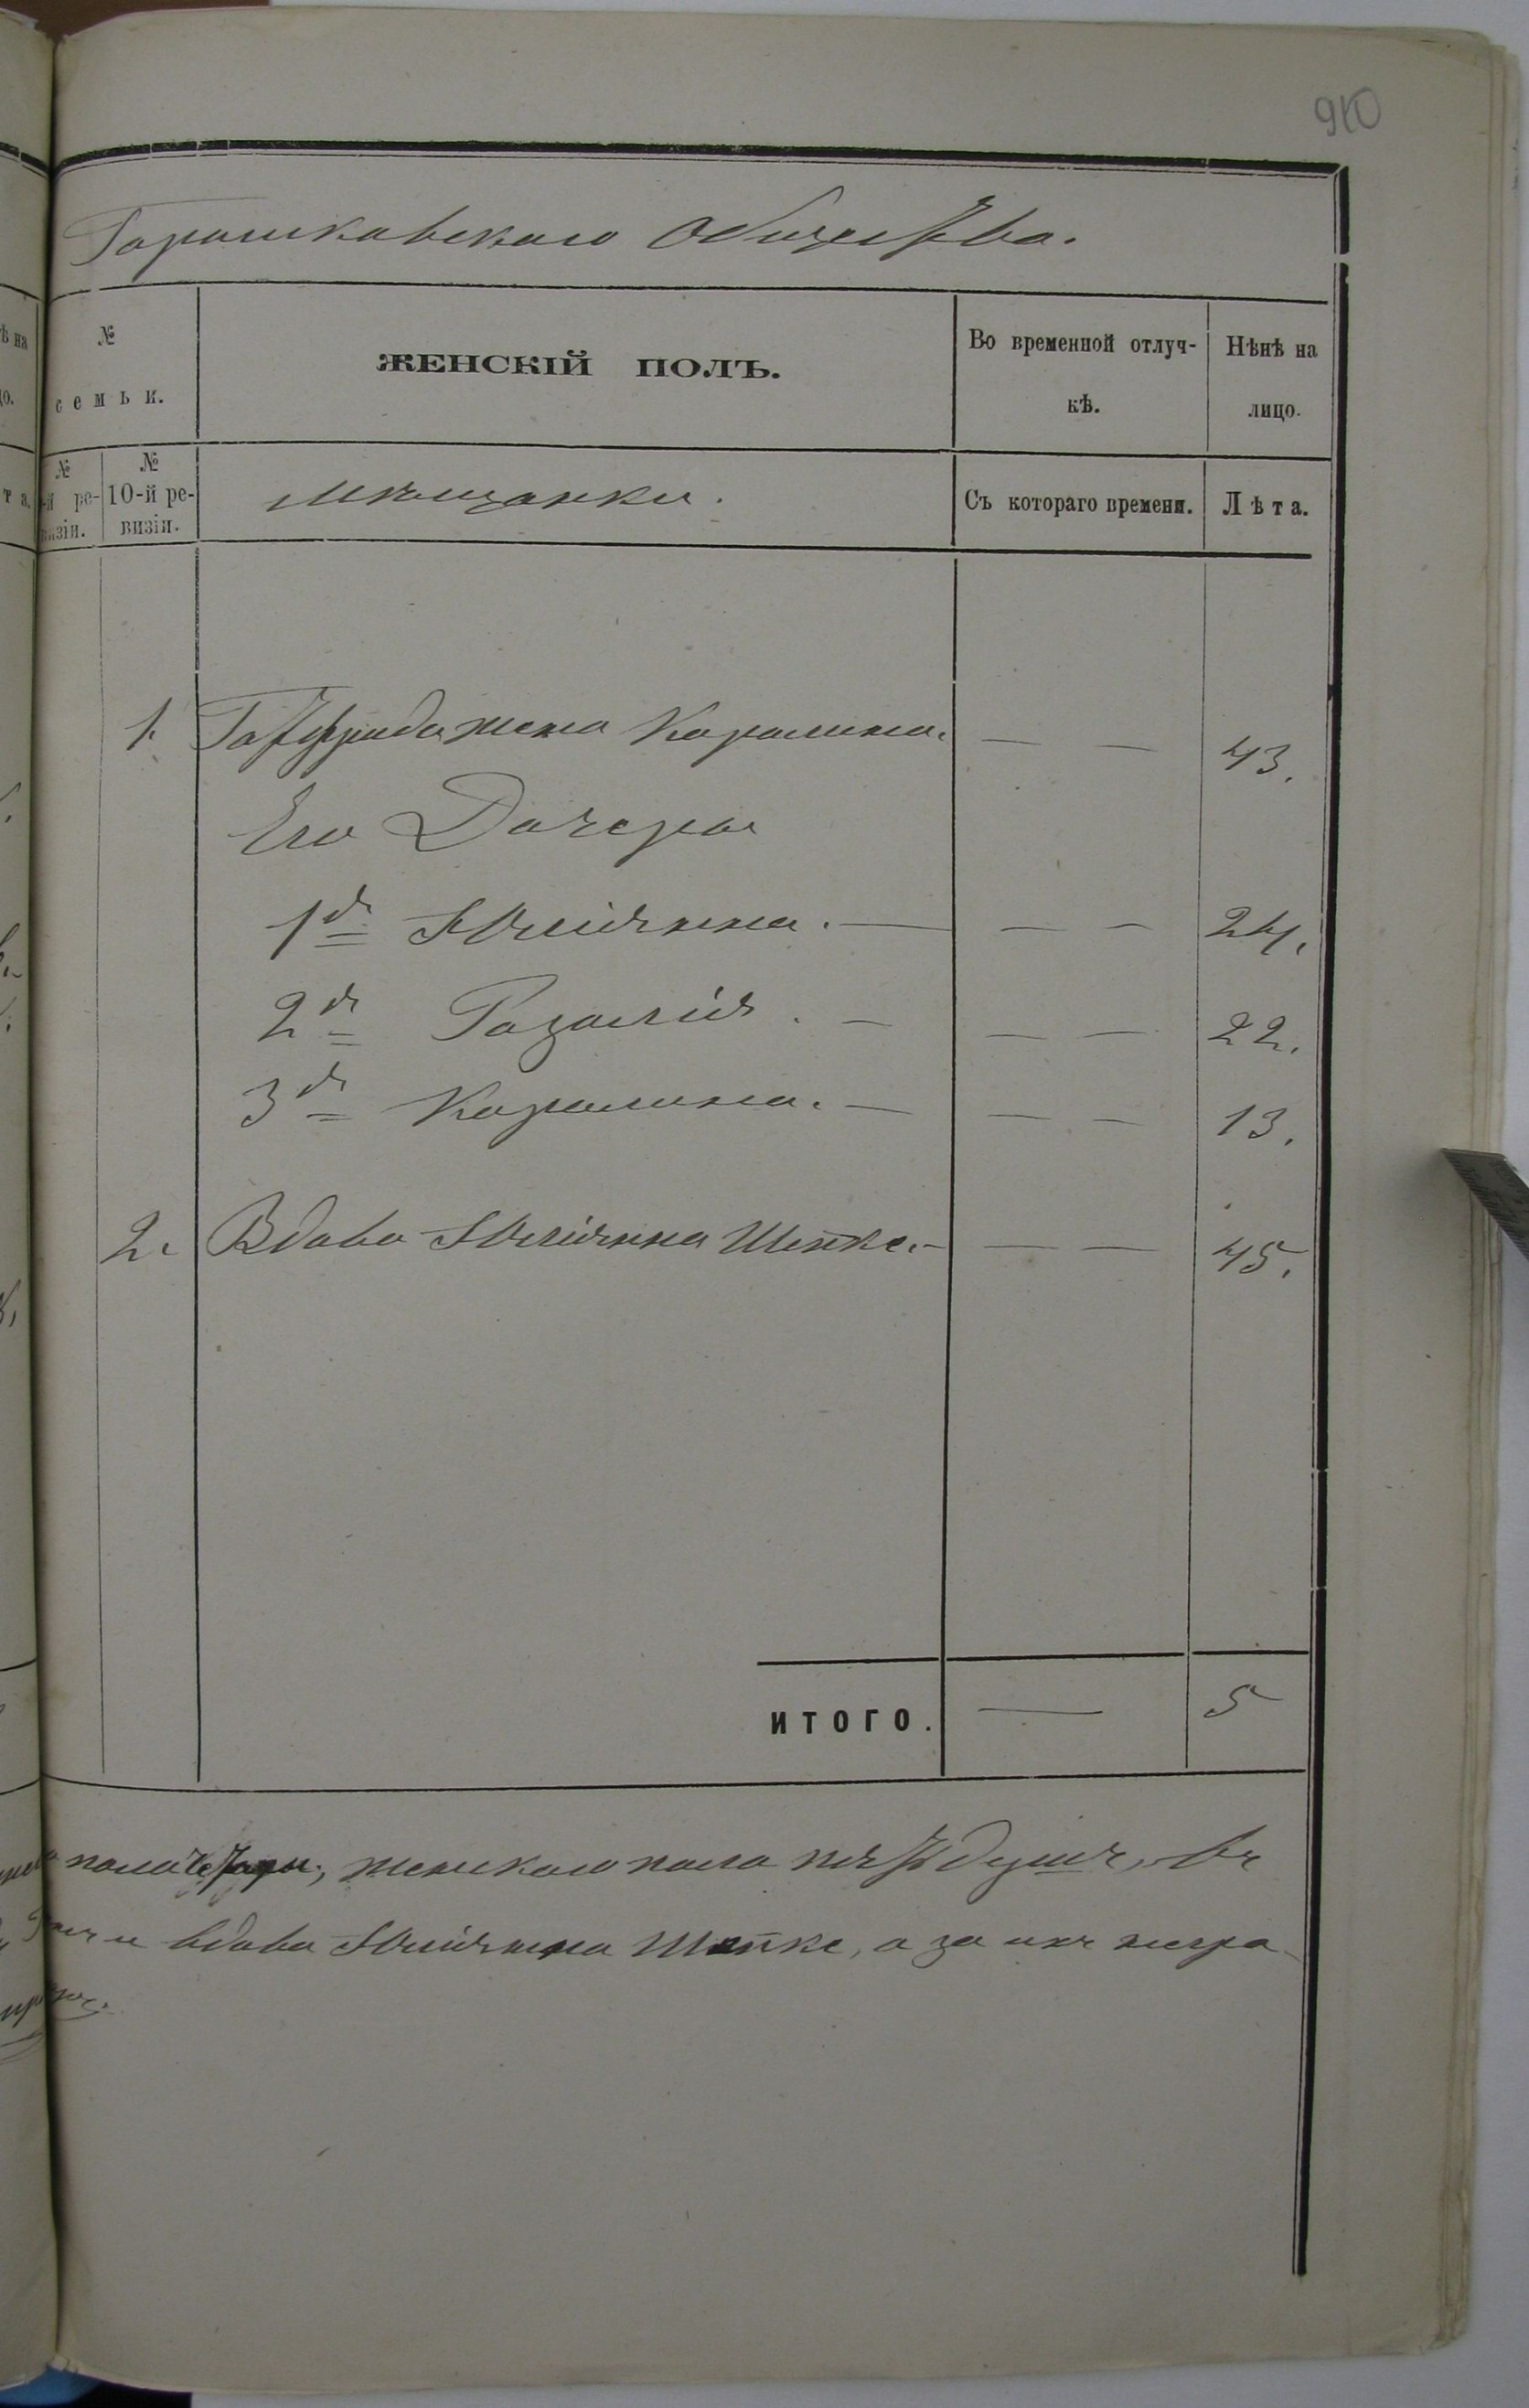 910
Горошковскаго Общества.
№
семьи.
ЖЕНСКІЙ ПОЛЪ.
Во временной отлуч-
кѣ.
Нѣнѣ на
лицо.
№
-й ре-
визіи.
№
10-й ре-
визіи.
Мѣщанки.
Съ котораго времени.
Лѣта.
1. Готфрида жена Каролина. — — 43.
Его Дочери
1я Юліянна. — — — 24.
2я Розалія. — — — 22.
3я Каролина. — — — 13.
2. Вдова Юліянна Шепке. — — — 45.
ИТОГО. — 5
пола четыре, женскаго пола пять душъ, въ
и вдова Юліянна Шепке, а за ихъ негра-